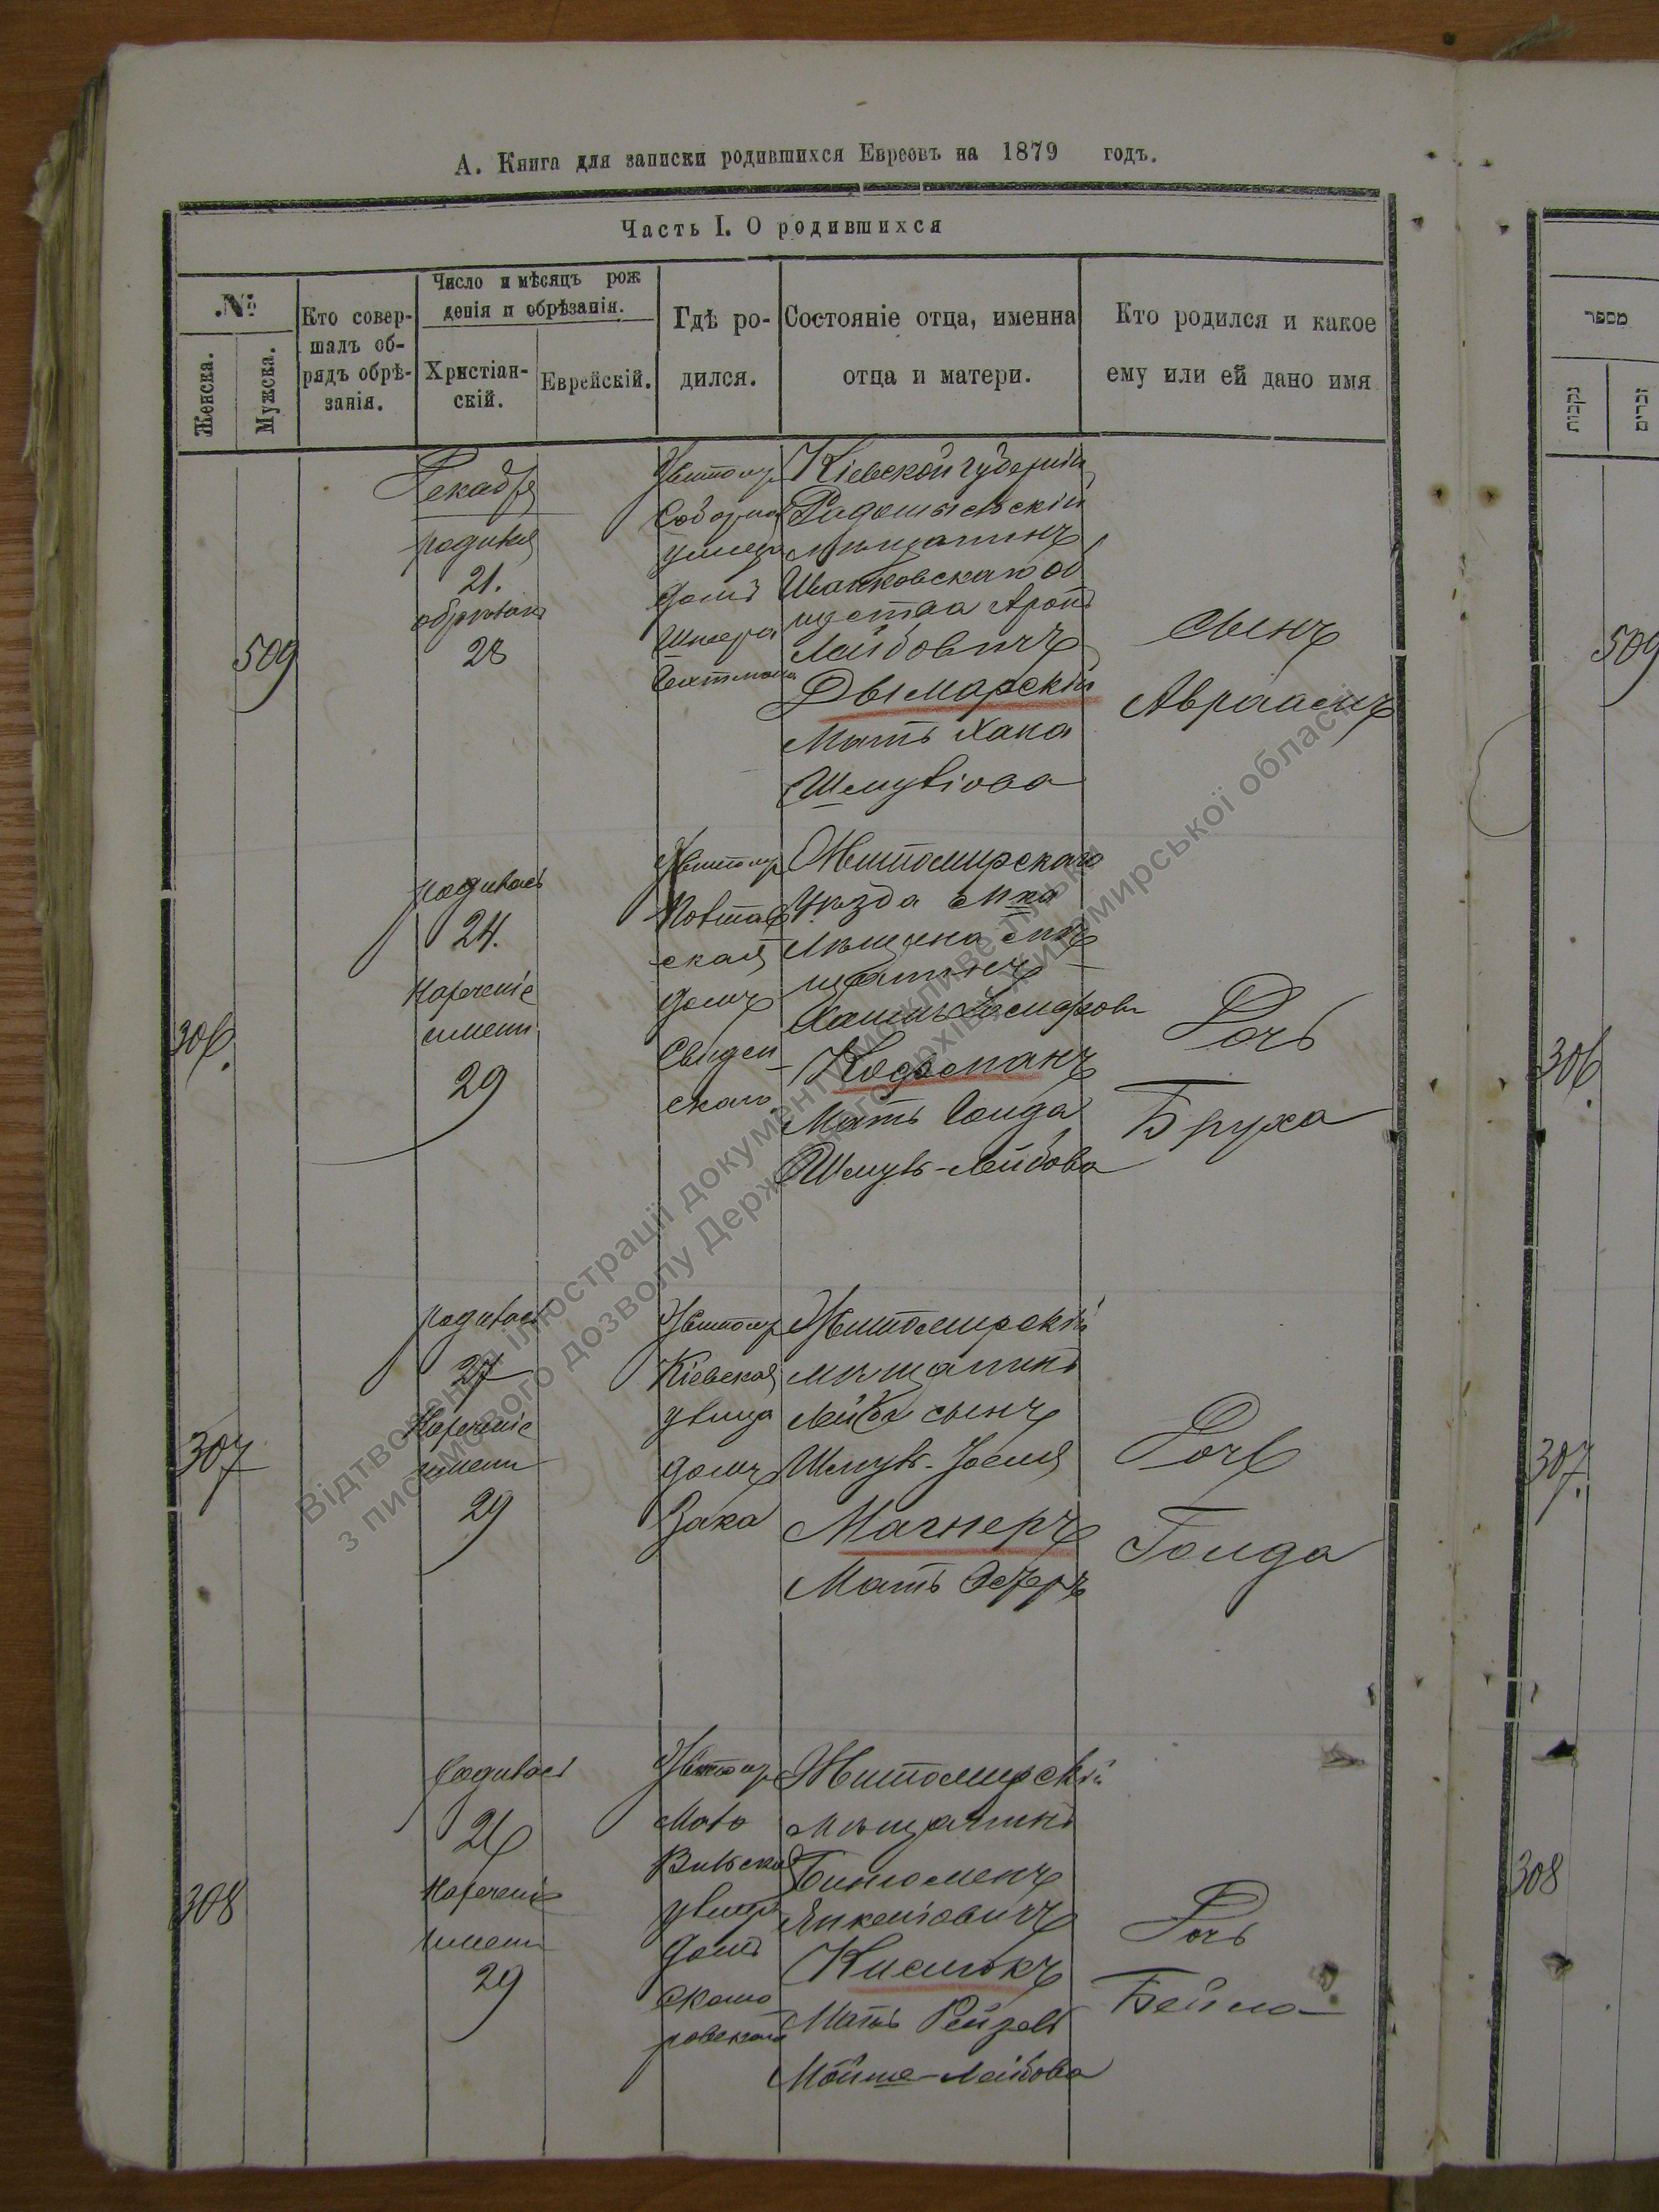 А. Книга для записки родившихся Евреовъ на 1879 годъ.
Часть I. О родившихся
№
Женска.
Мужска.
Кто совер-
шалъ об-
рядъ обрѣ-
занія.
Число и мѣсяцъ рож
денія и обрѣзанія.
Христіан-
скій.
Еврейскій.
Гдѣ ро-
дился.
Состояніе отца, именна
отца и матери.
Кто родился и какое
ему или ей дано имя
מספר
נקבות
זכרים
509
Декабр
родився
21.
обрѣзанъ
28
Житомир
Соборная
улица
домъ
Шмера
Кіевской губерніи
Радомысльскій
мѣщанинъ
Ивановскаго об
щества Аронъ
Лейбовичъ
Дымарскій
Мать Хана
Шмуліова
сынъ
Авраамъ
509
306.
родилась
24.
нареченіе
имени
29
Житомир
Полтав
ская
домъ
скаго
Житомирскаго
уѣзда м-ка
мѣ
щанинъ
Кофманъ
Мать Голда
Шмуль-Лейбова
Дочь
Бруха
306.
307
родилась
27
Нареченіе
имени
29
Житомир
Кіевская
улица
домъ
Зака
Житомирскій
мѣщанинъ
Лейба сынъ
Шмуль-Іоселя
Магнеръ
Мать Эстеръ
Дочь
Голда
307.
308
родилась
26
Нареченіе
имени
29
Житомир
Мало
Вильская
улица
домъ
Скомо
ровскаго
Житомирскій
мѣщанинъ
Биньоменъ
Янкеліовичъ
Кислюкъ
Мать Рейзель
Мойше-Лейбова
Дочь
Бейла
308
Відтворення ілюстрації документу можливе тільки
з письмового дозволу Державного архіву Житомирської області